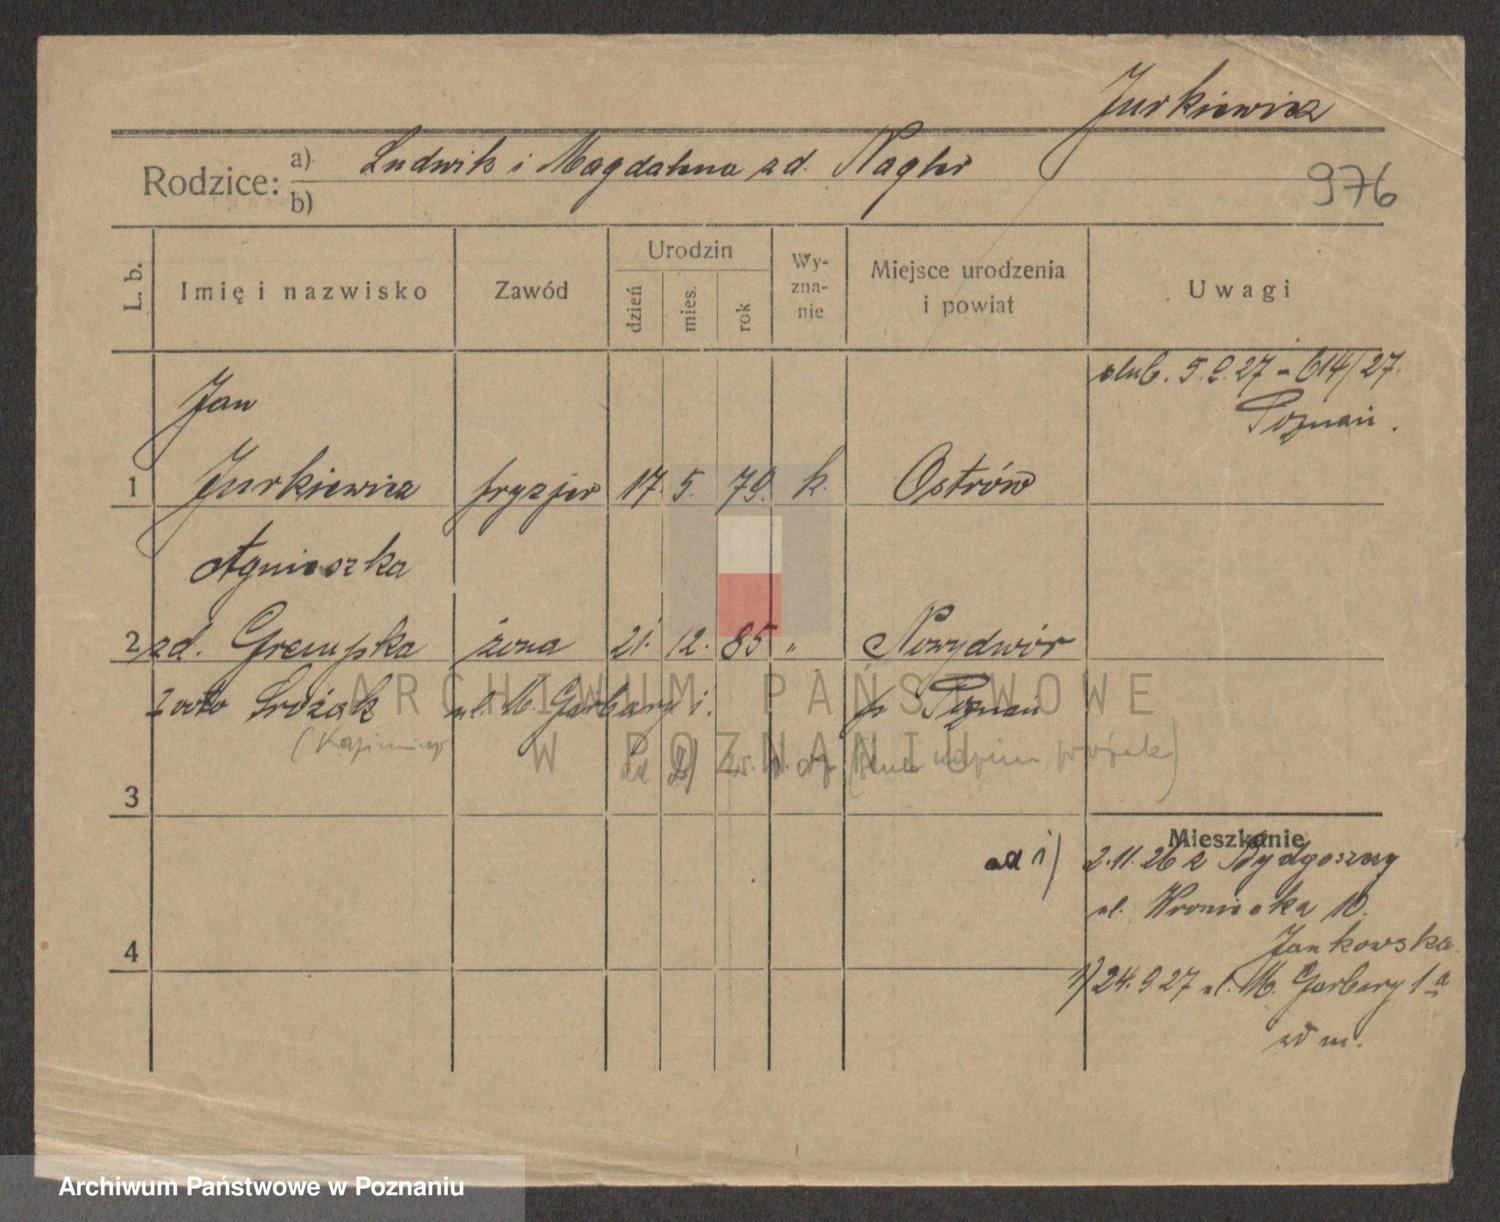 Jurkiewicz
Rodzice: a) Ludwik i Magdalena zd. Nagler
b)
976
L. b.
Imię i nazwisko
Zawód
Urodzin
dzień
mies.
rok
Wy-
zna-
nie
Miejsce urodzenia
i powiat
Uwagi
ślub. 5.9.27 - 614/27.
Poznań.
Jan
1 Jurkiewicz fryzjer 17. 5. 79. k. Ostrów
Agnieszka
2 zd. żona 21. 12. 85 " Nowydwór
2 voto Srożak ul. M. Garbary 1. p. Poznań
(Kazimierz
ad 2)
3
Mieszkanie
ad 1) 2.11.26 z Bydgoszczy
ul. Wroniecka 10.
Jankowska
4
1) 24.9 27 ul. M. Garbary 1a
w m.
ARCHIWUM PAŃSTWOWE
W POZNANIU
Archiwum Państwowe w Poznaniu